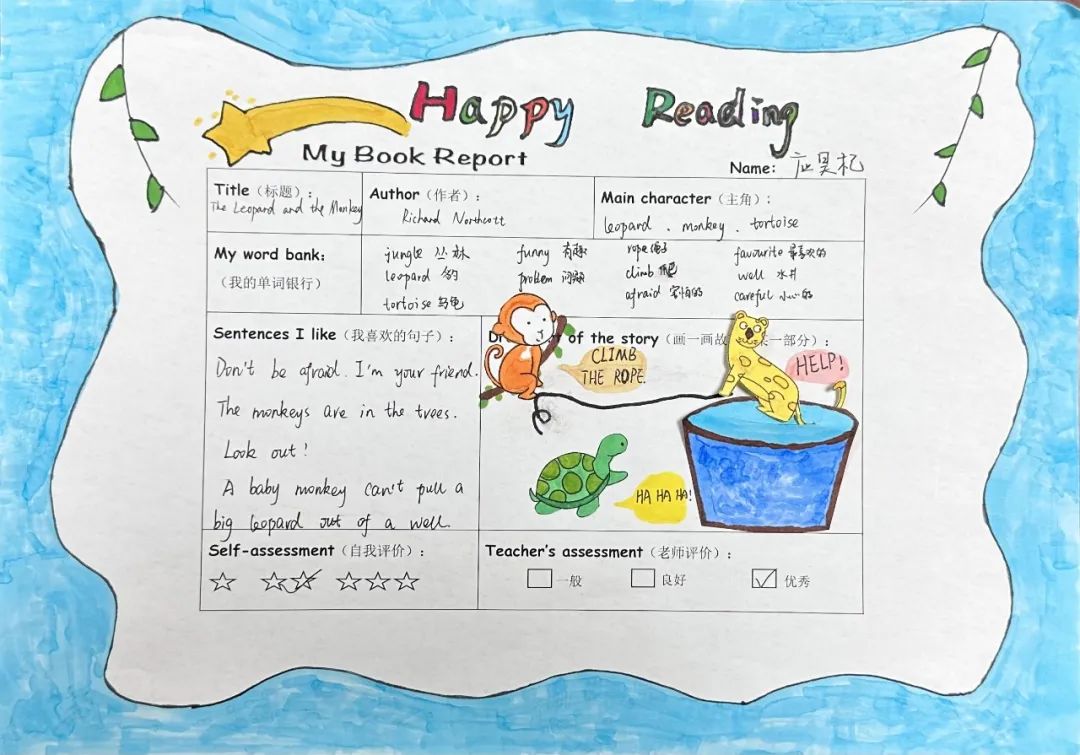 Happy Reading
My Book Report
Name: 应昊杞
Title（标题）: Author（作者）: Main character（主角）:
The Leopard and the Monkey Richard Northcott leopard、monkey、tortoise
My word bank:
（我的单词银行）
jungle 丛林 funny 有趣 rope 绳子 favourite 最喜欢的
leopard 豹 problem 问题 climb 爬 well 水井
tortoise 乌龟 afraid 害怕的 careful 小心的
Sentences I like（我喜欢的句子）:
Don't be afraid. I'm your friend.
The monkeys are in the trees.
Look out!
A baby monkey can't pull a
big leopard out of a well.
of the story（画一画故 一部分）:
CLIMB
THE ROPE.
HELP!
HA HA HA!
Self-assessment（自我评价）:
☆ ☆☆ ☆☆☆
Teacher's assessment（老师评价）:
一般 良好 优秀